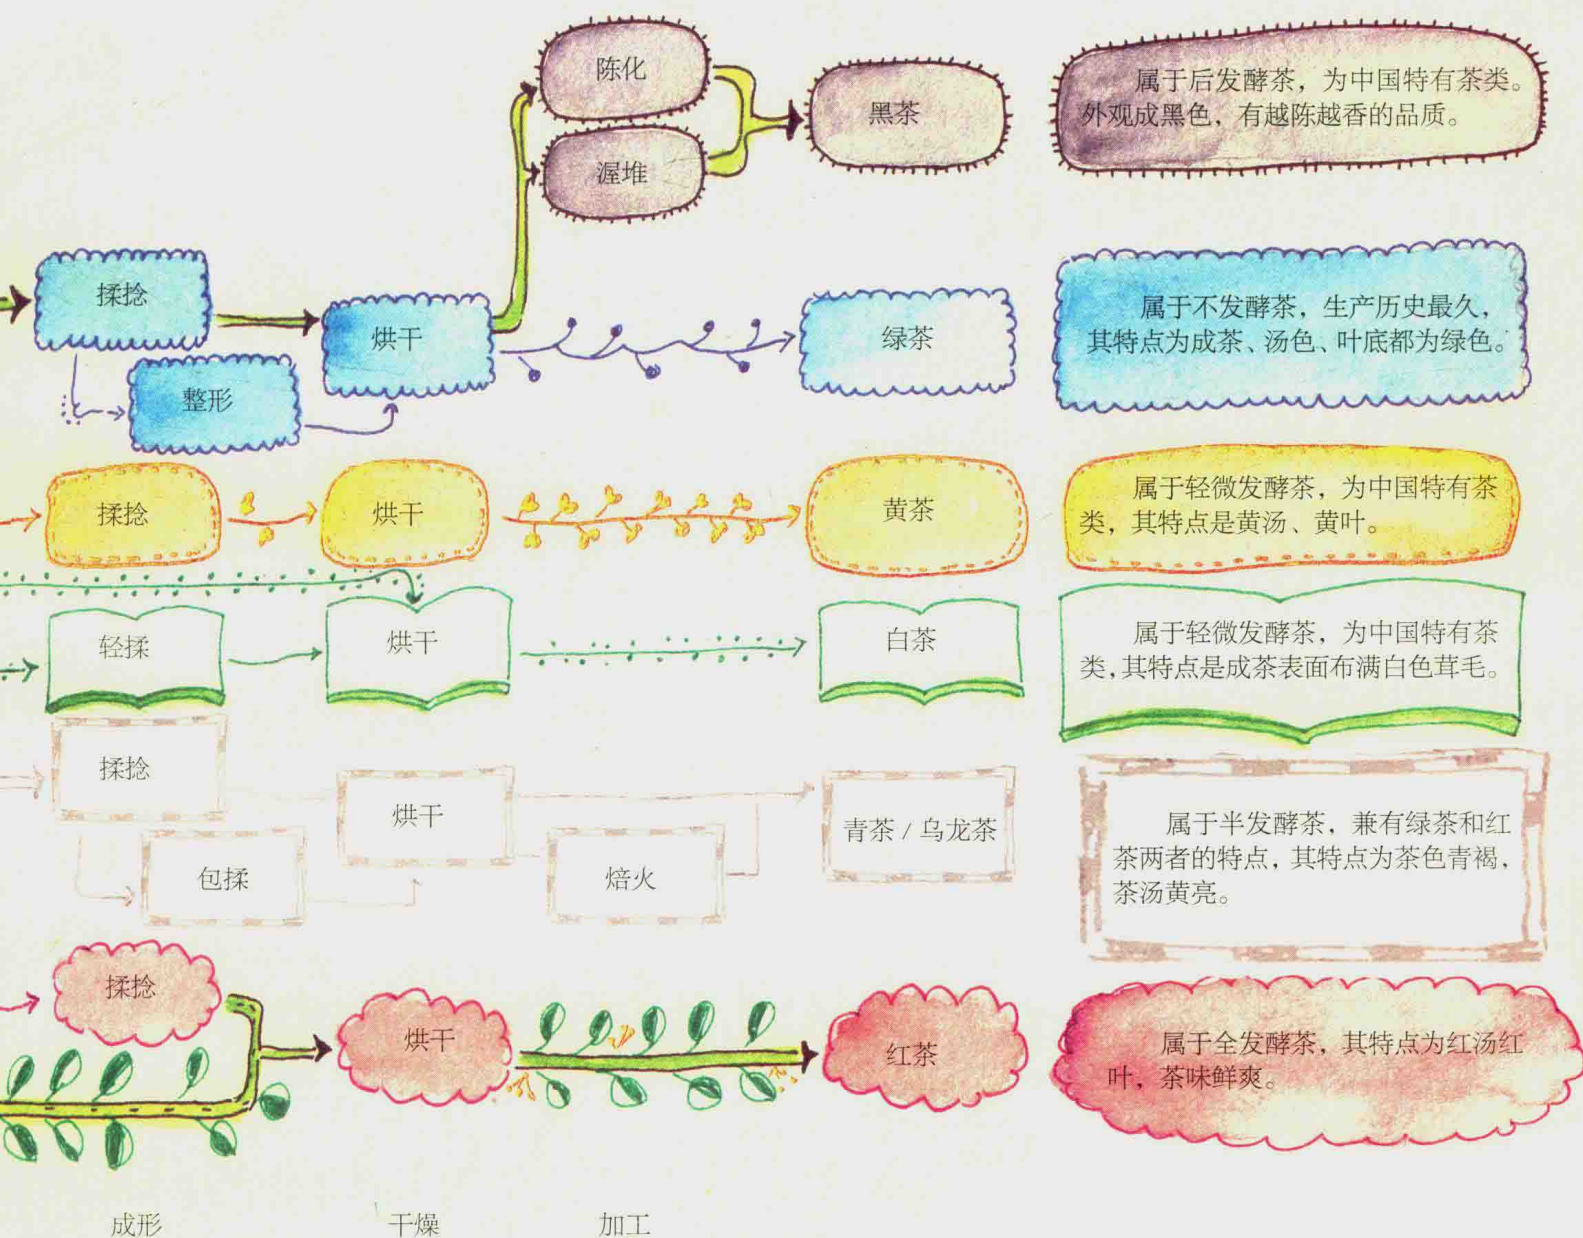 陈化
渥堆
黑茶
属于后发酵茶，为中国特有茶类。
外观成黑色，有越陈越香的品质。
揉捻
整形
烘干
绿茶
属于不发酵茶，生产历史最久，
其特点为成茶、汤色、叶底都为绿色。
揉捻
烘干
黄茶
属于轻微发酵茶，为中国特有茶
类，其特点是黄汤、黄叶。
轻揉
烘干
白茶
属于轻微发酵茶，为中国特有茶
类，其特点是成茶表面布满白色茸毛。
揉捻
包揉
烘干
焙火
青茶 / 乌龙茶
属于半发酵茶，兼有绿茶和红
茶两者的特点，其特点为茶色青褐，
茶汤黄亮。
揉捻
烘干
红茶
属于全发酵茶，其特点为红汤红
叶，茶味鲜爽。
成形
干燥
加工